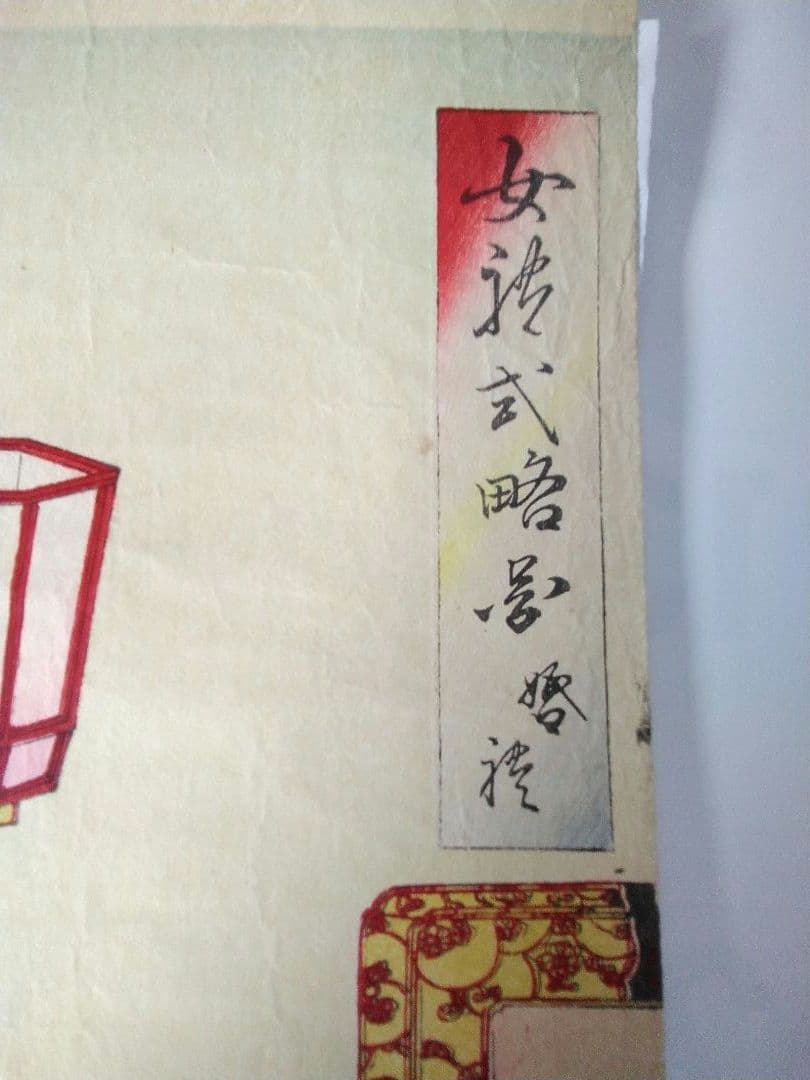 女禮式略圖 婚禮